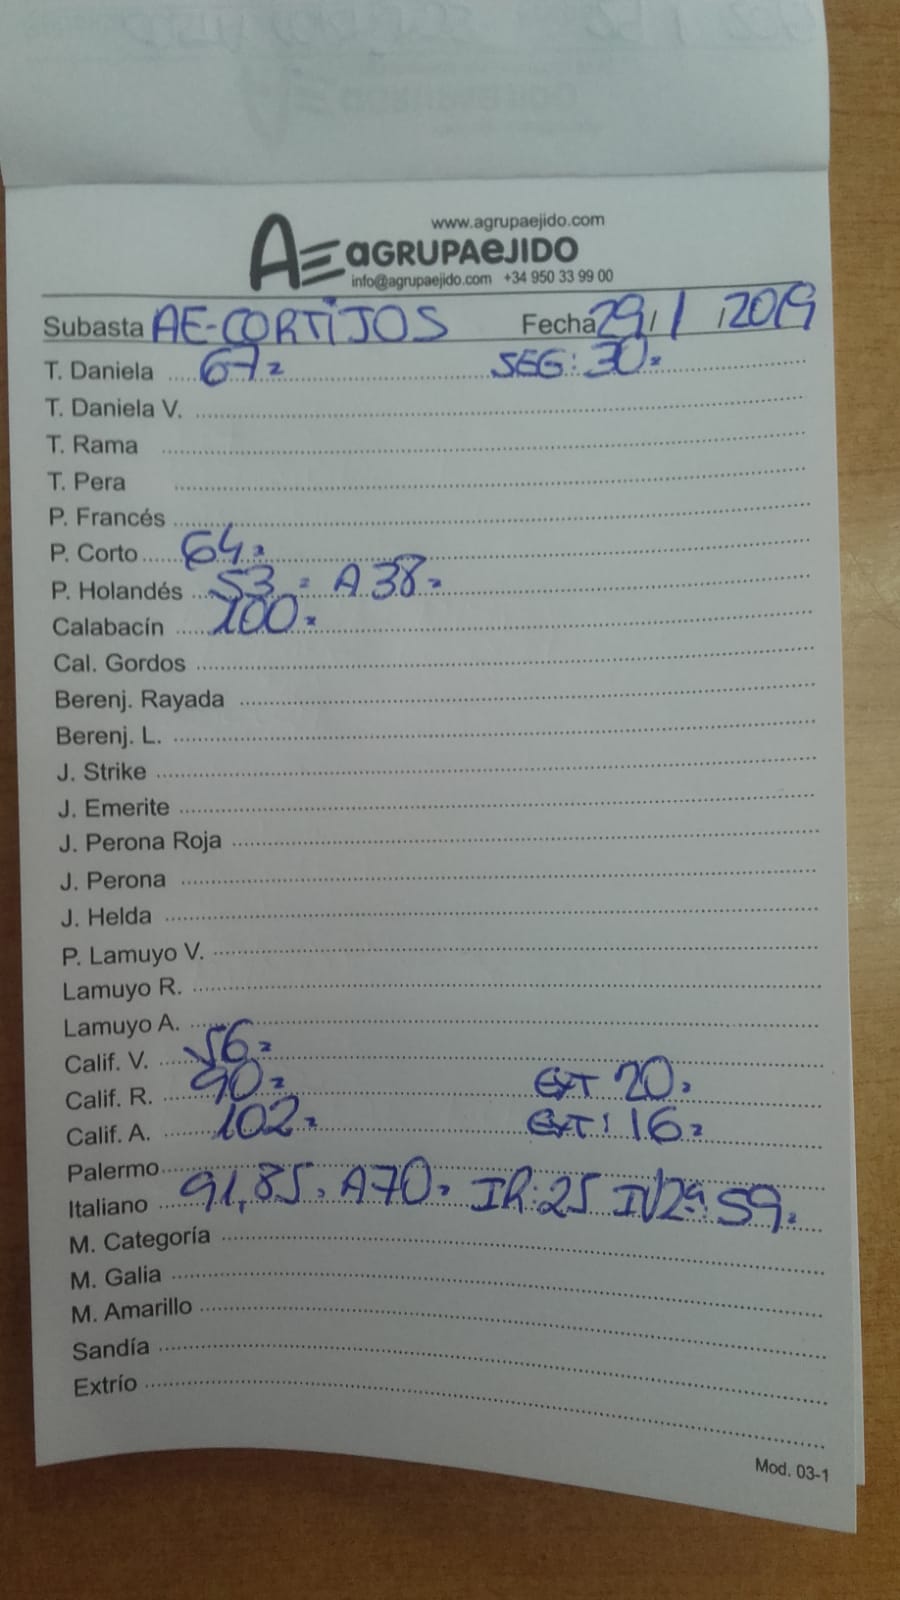 www.agrupaejido.com
AE aGRUPAeJIDO
info@agrupaejido.com +34 950 33 99 00
Subasta AE-CORTIJOS Fecha 29/1/2019
T. Daniela 67= SEG: 30=
T. Daniela V.
T. Rama
T. Pera
P. Francés
P. Corto 64=
P. Holandés 53= A 38=
Calabacín 100=
Cal. Gordos
Berenj. Rayada
Berenj. L.
J. Strike
J. Emerite
J. Perona Roja
J. Perona
J. Helda
P. Lamuyo V.
Lamuyo R.
Lamuyo A.
Calif. V. 56=
Calif. R. 90= EXT 20=
Calif. A. 102= EXT: 16=
Palermo
Italiano 91,85= A70= IR:25 IV2ª: 59=
M. Categoría
M. Galia
M. Amarillo
Sandía
Extrío
Mod. 03-1